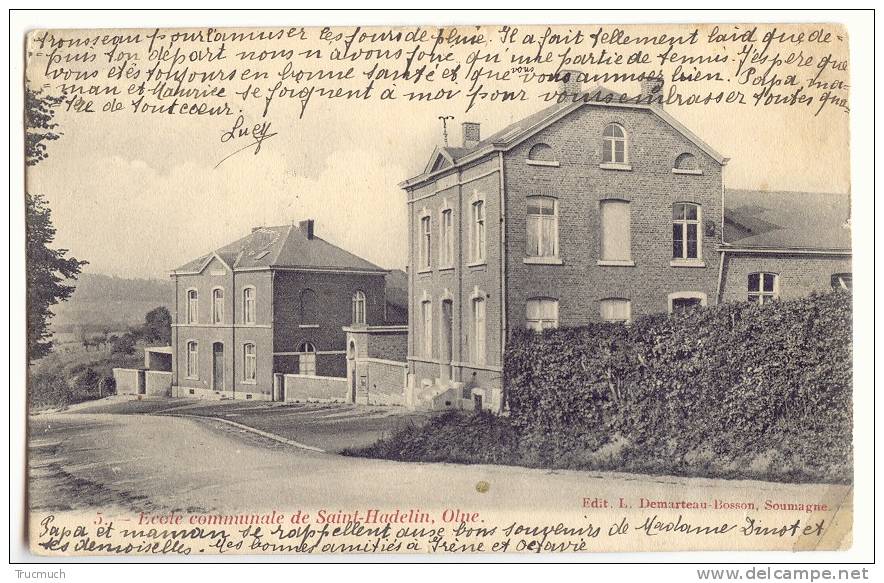 trousseau pour l'amuser les jours de pluie. Il a fait tellement laid que de=
puis ton départ nous n'avons joué qu'une partie de tennis. J'espère que
vous êtes toujours en bonne santé et que vous vous amusez bien. Papa, ma=
man et Maurice se joignent à moi pour vous embrasser toutes qua=
tre de tout cœur.
Lucy
5. — Ecole communale de Saint-Hadelin, Olne.
Edit. L. Demarteau-Bosson, Soumagne.
Papa et maman se rappellent aux bons souvenirs de Madame Dinot et
ses demoiselles. Mes bonnes amitiés à Irène et Octavie
Trucmuch
www.delcampe.net